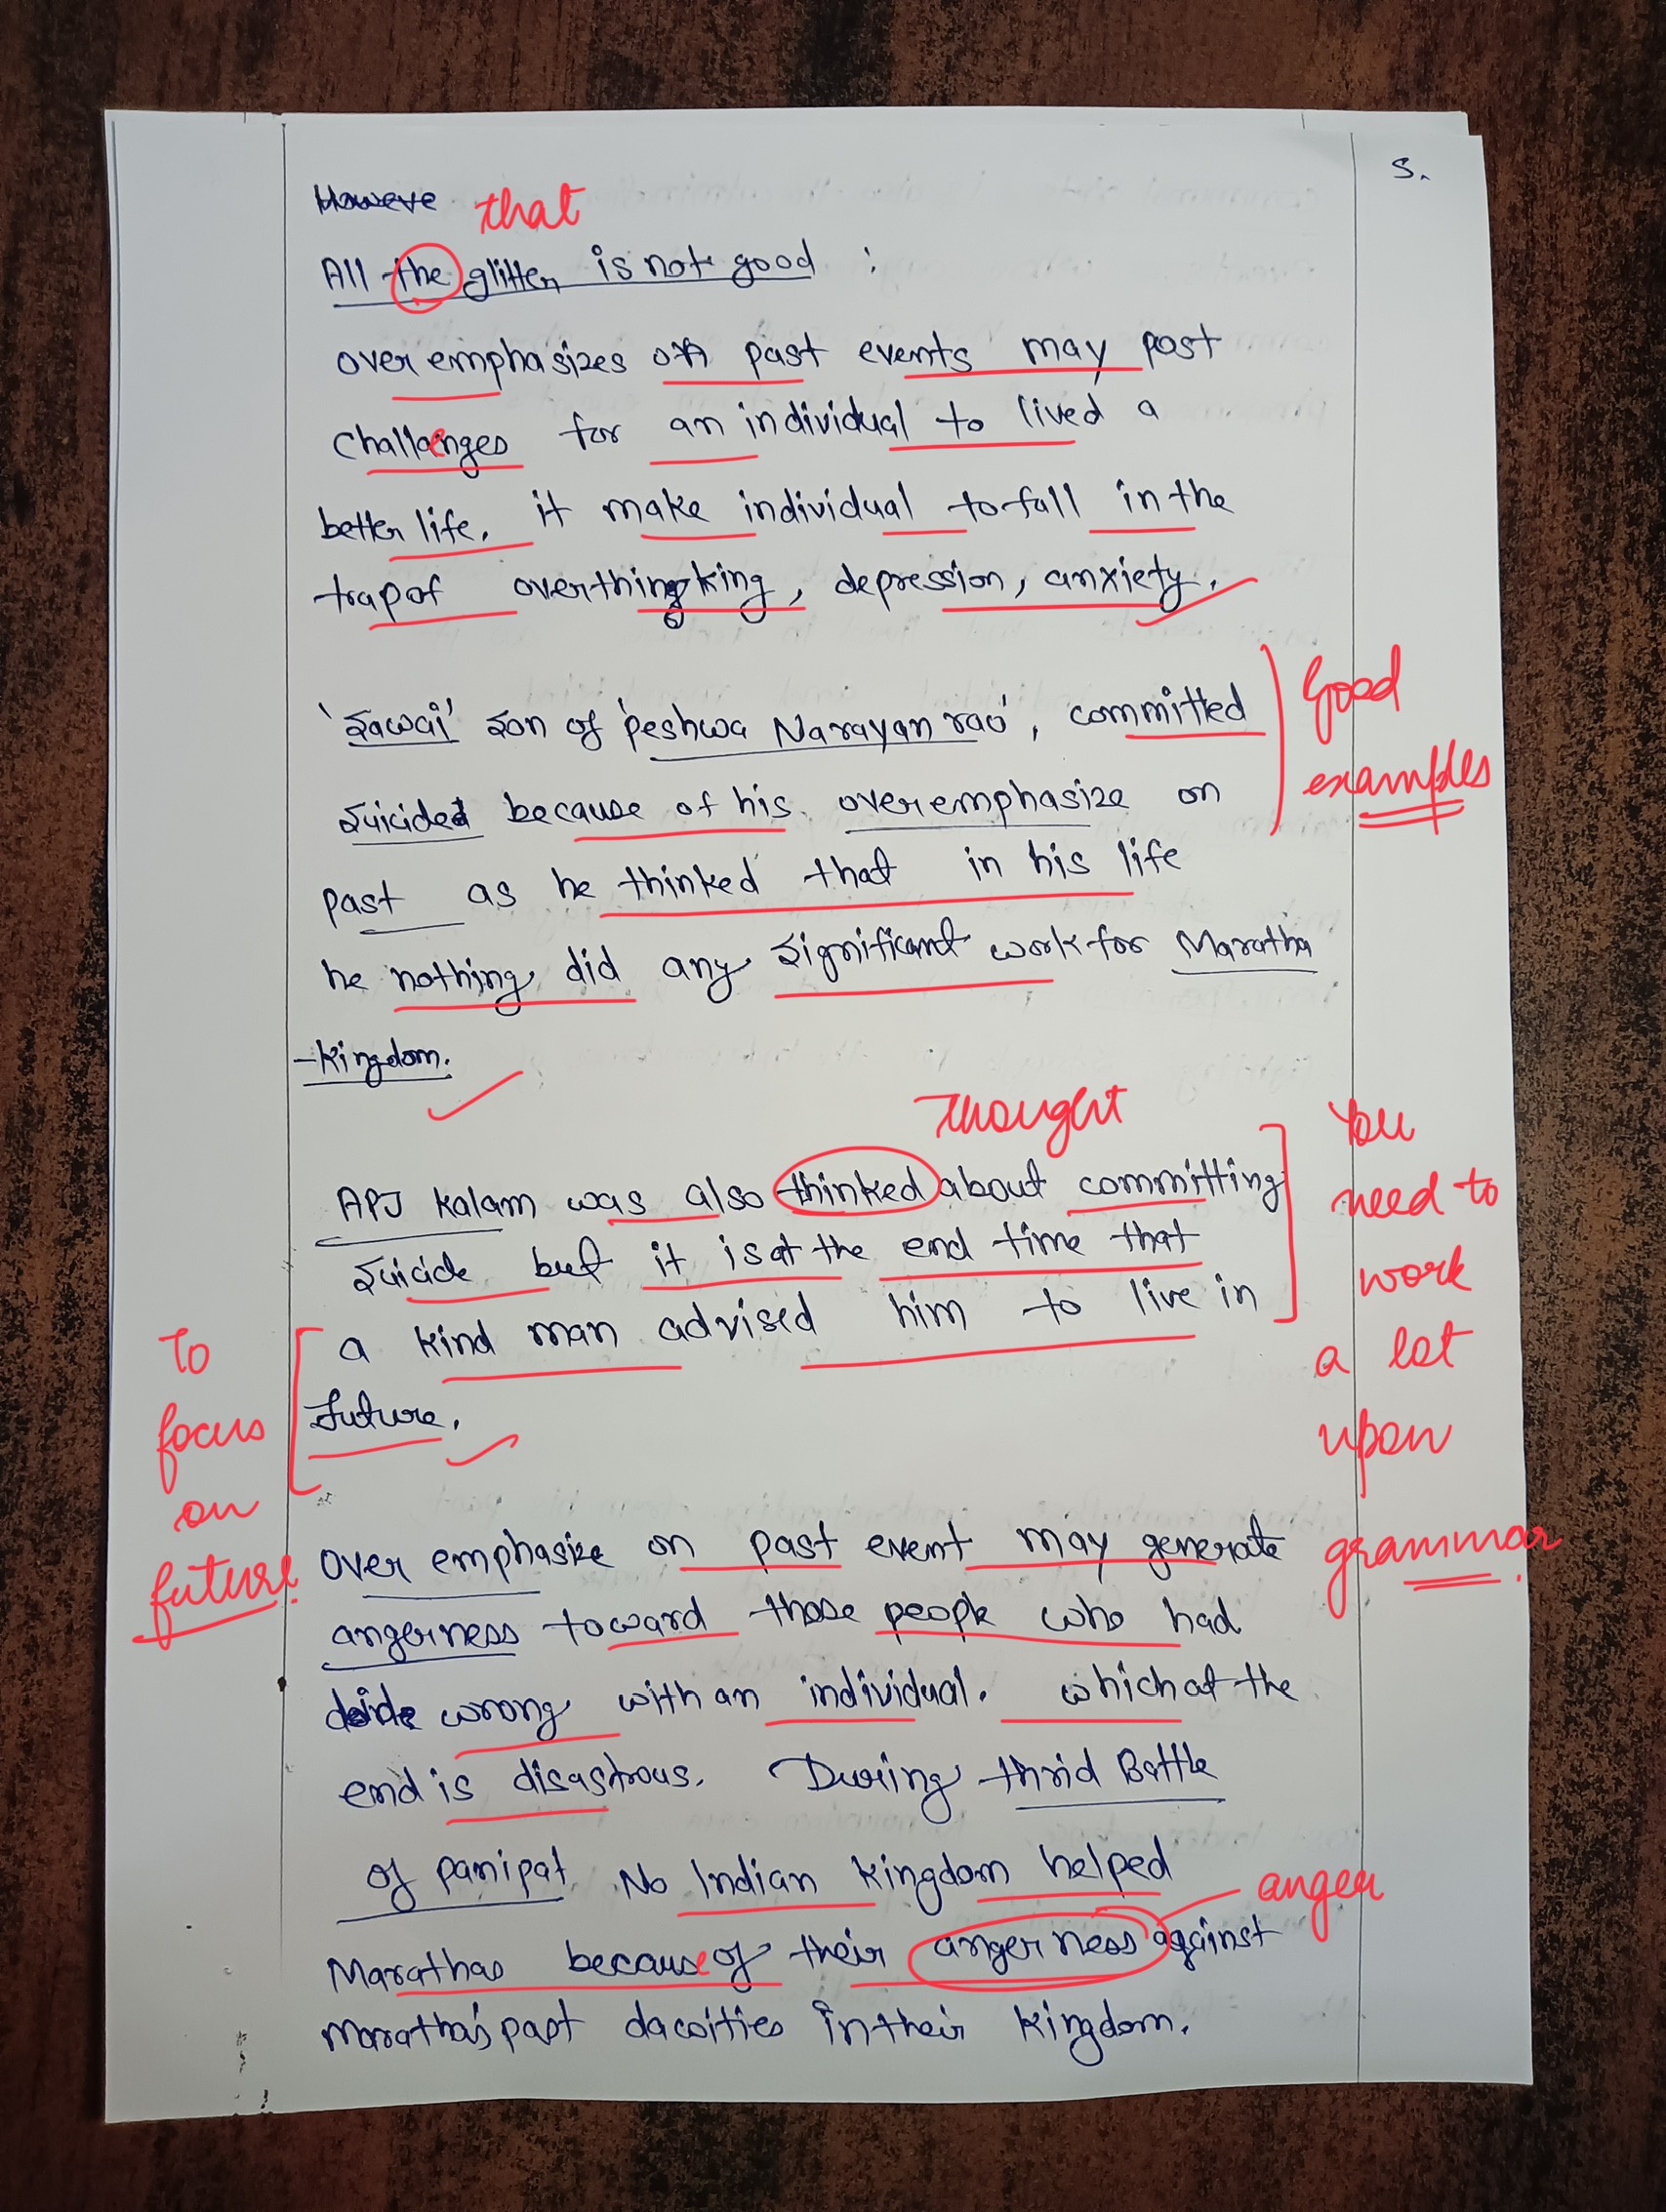 S.
Howeve that
All the glitter is not good :
over emphasizes on past events may post
challenges for an individual to lived a
better life. it make individual to fall in the
trap of overthingking, depression, anxiety.
'Sawai' son of 'peshwa Narayan rao', committed
Good
examples
suicided because of his overemphasize on
past as he thinked that in his life
he nothing did any significant work for Maratha
-kingdom.
Thought
APJ Kalam was also thinked about committing
suicide but it is at the end time that
a kind man advised him to live in
future.
You
need to
work
a lot
upon
grammar.
To
focus
on
future.
Over emphasize on past event may generate
angerness toward those people who had
wrong with an individual. which at the
end is disastrous. During thrid Battle
of panipat No Indian kingdom helped
anger
Marathas because of their angerness against
Maratha's past dacoities in their kingdom.